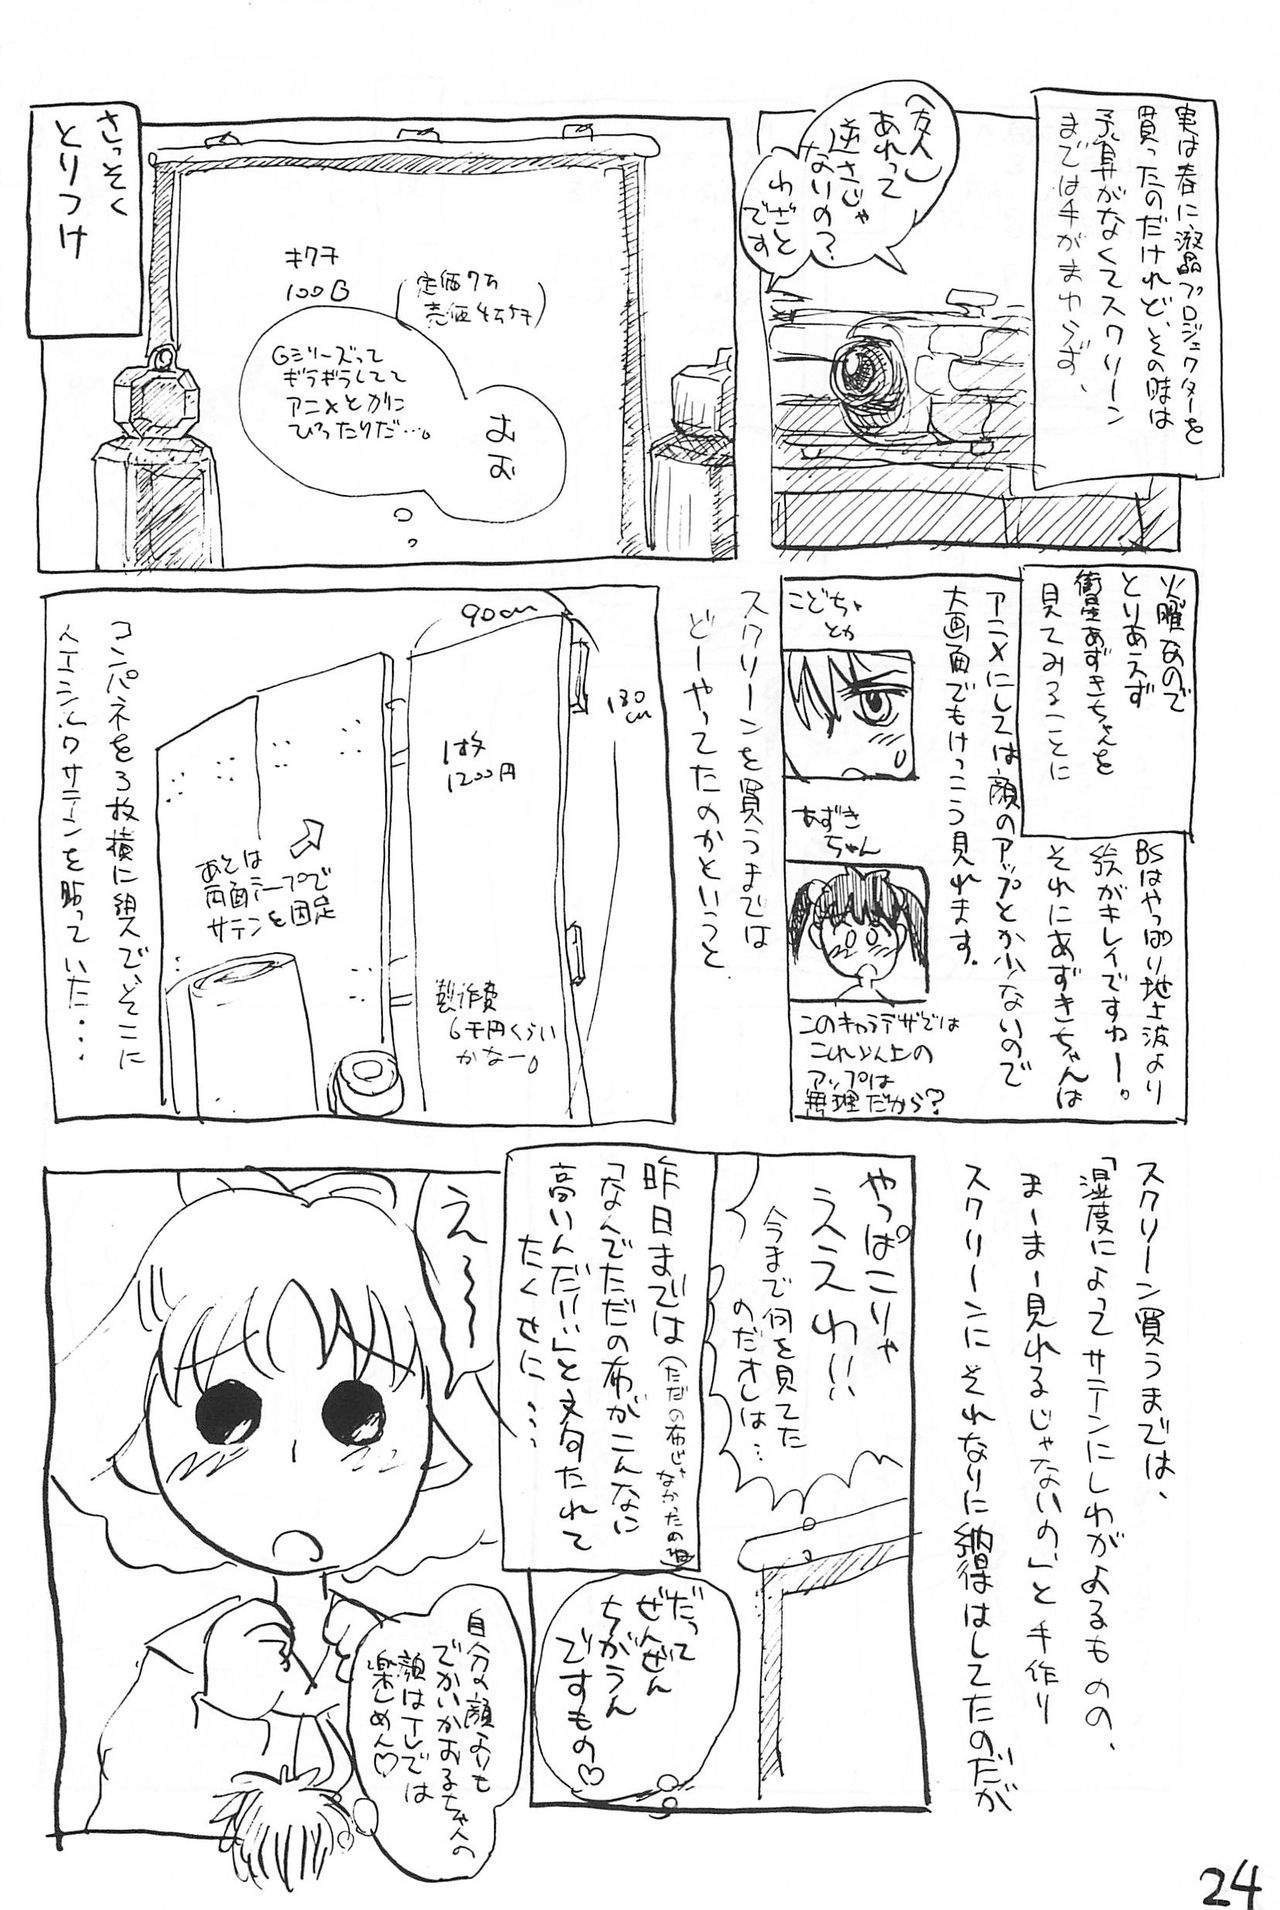 実は春に液晶プロジェクターを
買ったのだけれど、その時は
予算がなくてスクリーン
までは手がまわらず、
(友人)
あれって
逆さじゃ
ないの?
わざと
です
さっそく
とりつけ
キクチ
100G
Gシリーズって
ギラギラしてて
アニメとかに
ぴったりだ…。
おお
火曜なので
とりあえず
衛星あずきちゃんを
見てみることに
BSはやっぱり地上波より
絵がキレイですねー。
それにあずきちゃんは
アニメにしては顔のアップとか少ないので
大画面でもけっこう見れます。
こどちゃ
とか
あずき
ちゃん
このキャラデザでは
これ以上の
アップは
無理だから?
スクリーンを買うまでは
どーやってたのかというと
90cm
180cm
1枚
1200円
あとは
両面テープで
サテンを固定
製作費
6千円くらい
かなー。
コンパネを3枚横に組んで、そこに
サテンを貼っていた・・・・
スクリーン買うまでは、
「湿度によってサテンにしわがよるものの、
まーまー見れるじゃないの」と手作り
スクリーンにそれなりに納得はしてたのだが
やっぱこりゃ
ええわ!!
今まで何を見てた
のだオレは…
昨日までは(ただの布じゃ
なかったのね)
「なんでただの布がこんなに
高いんだ!!」と文句たれて
たくせに・・・・
だって
ぜんぜん
ちがうん
ですもの♡
え〜〜
自分の顔よりも
でかいかおるちゃんの
顔はTVでは
楽しめん♡
24